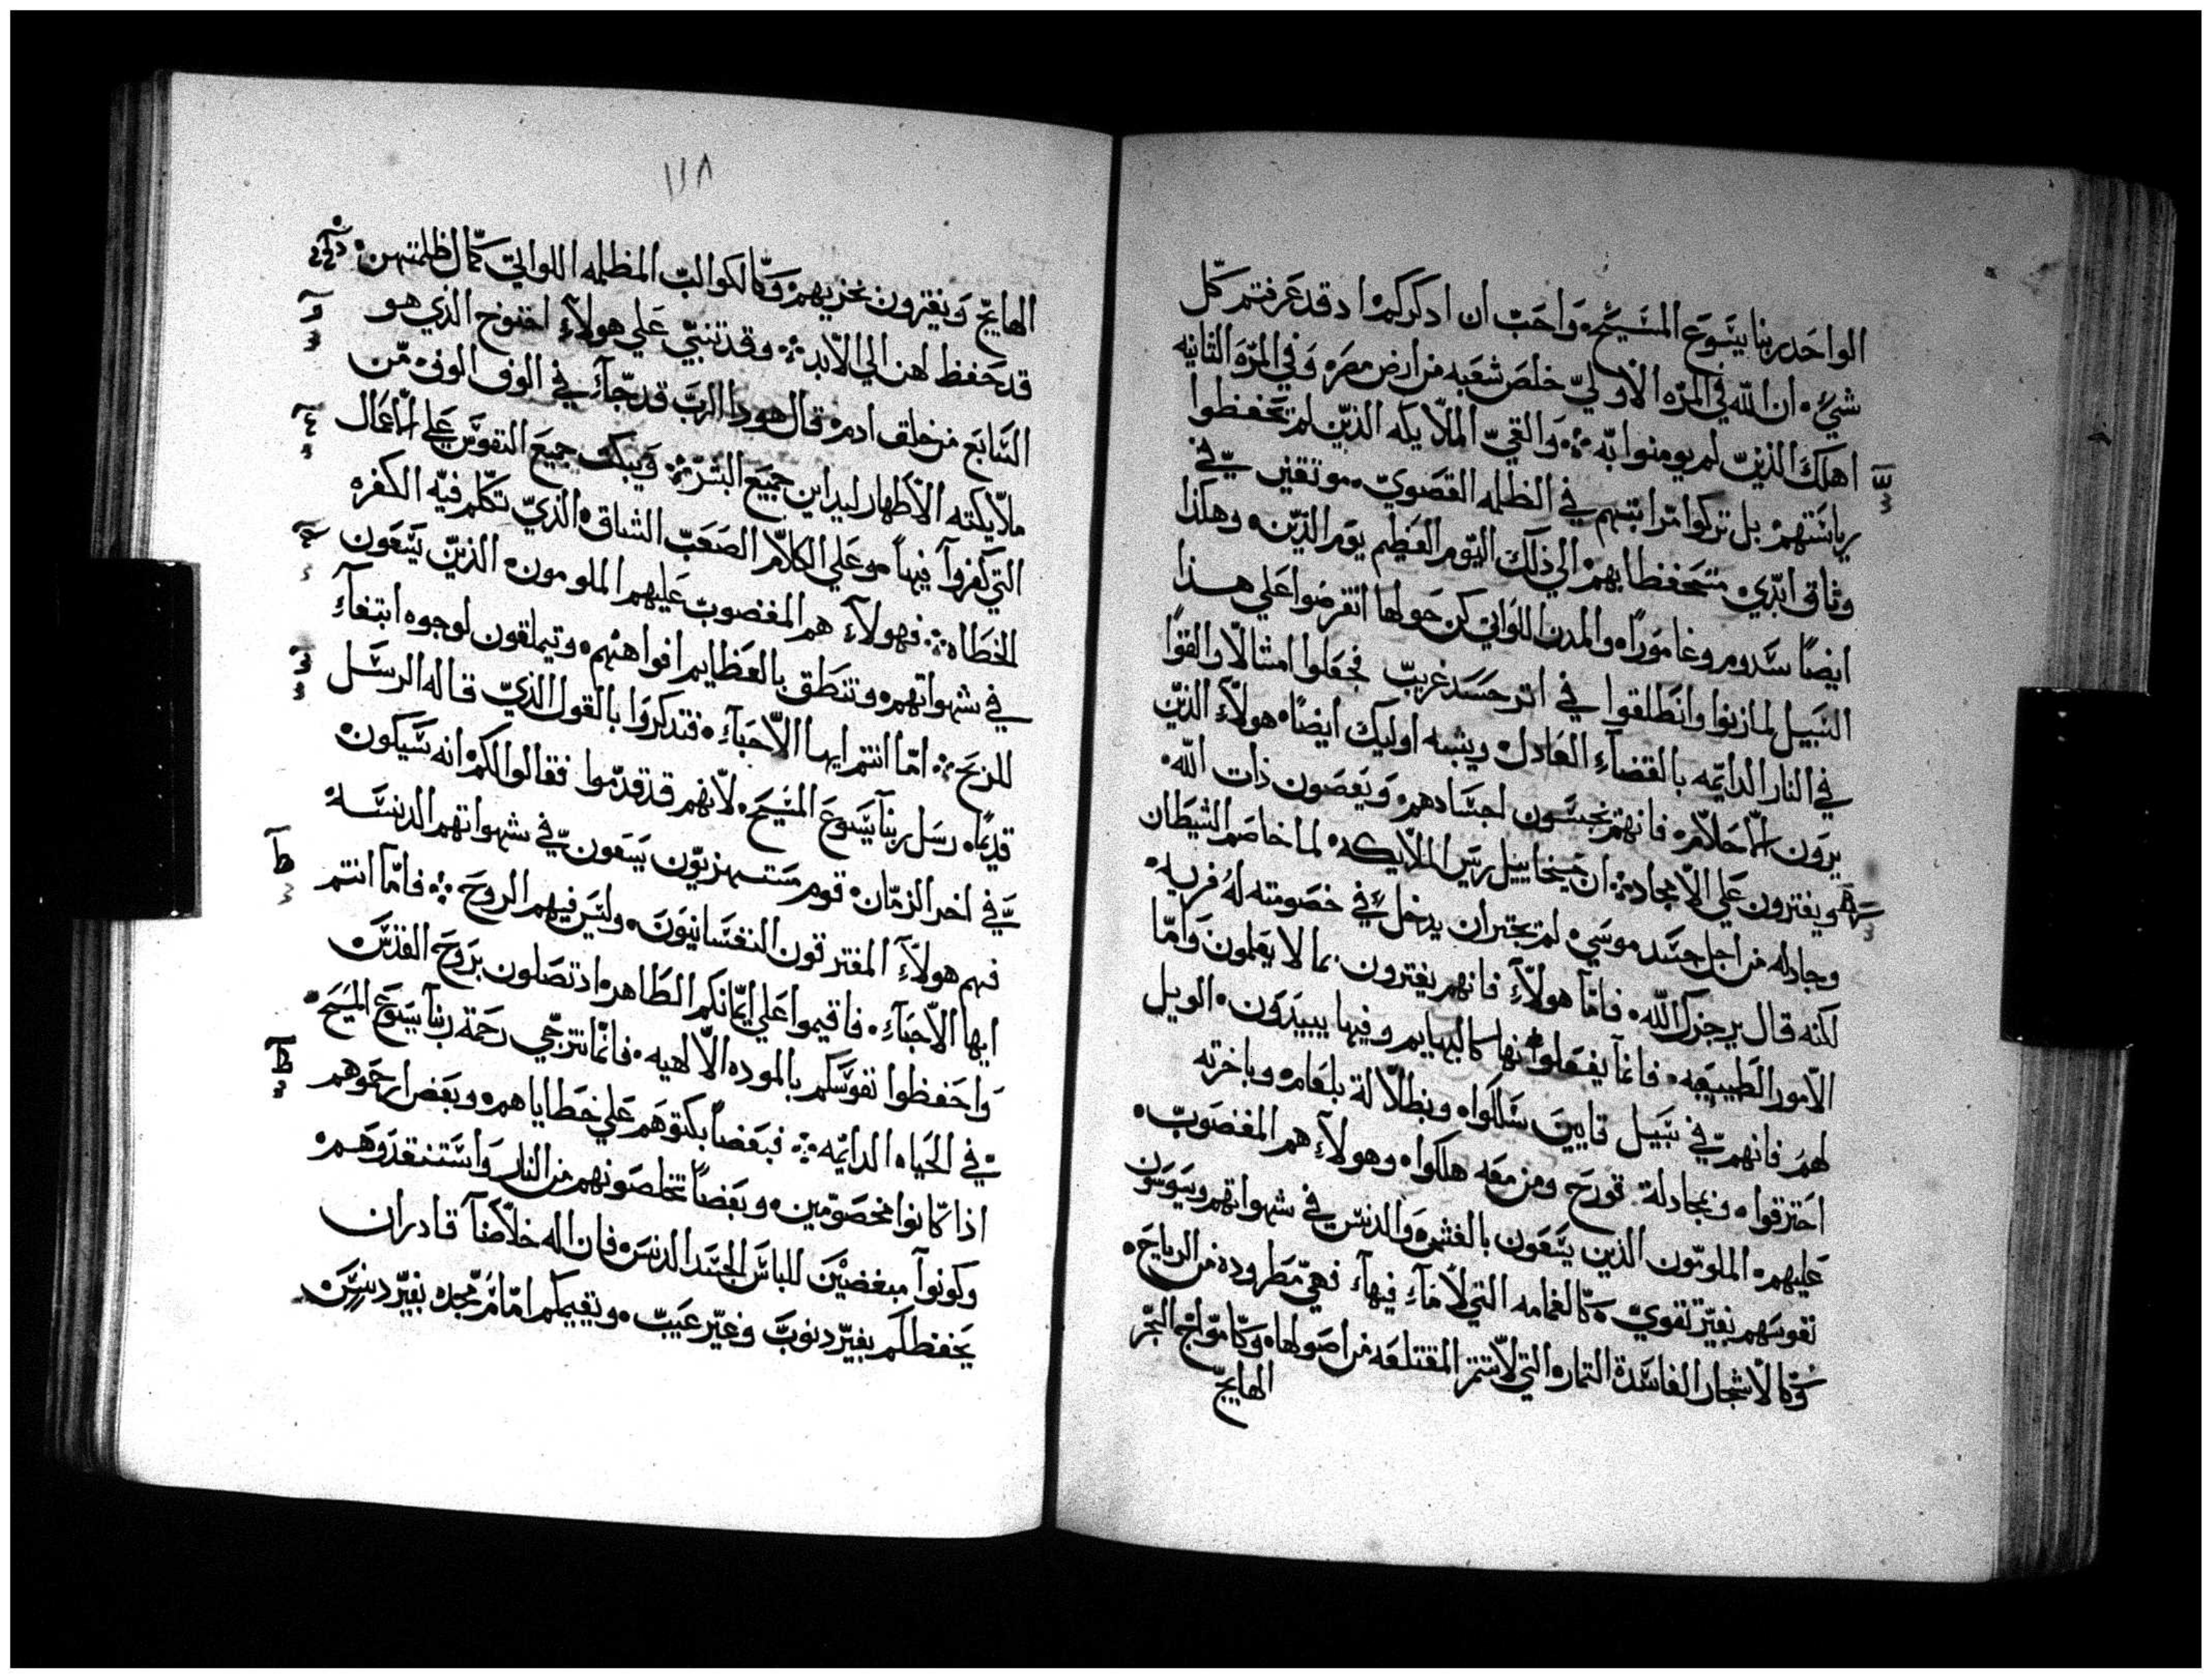 الواحد ربنا يسوع المسيح، واحب ان ادكركم ا د قد عرفتم كل
شي، ان الله في المره الاولي خلص شعبه من ارض مصر، وفي المره الثانيه
اهلك الذين لم يومنوا به ܀ والقي الملايكه الذين لم يحفظوا
رياستهم بل تركوا مراتبهم في الظلمه القصوي، موتقين في
وثاق ابدي متحفظا بهم الي ذلك اليوم العظيم يوم الدين، وهكذا
ايضاً سدوم وغامورا، والمدن اللواتي كن حولها انقرضوا علي هذا
السبيل لما زنوا وانطلقوا في اتر جسد غريب فجعلوا امثالا والقوا
في النار الدايمه بالقضاء العادل، ويشبه اوليك ايضاً، هولاء الذين
يرون الاحلام، فانهم ينجسون اجسادهم، ويعصون ذات الله،
ويفترون علي الامجاد ܀ ان ميخاييل ريس الملايكه، لما خاصم الشيطان
وجادله من اجل جسد موسي، لم يجتر ان يدخل في خصومته له فريه،
لكنه قال يرجزك الله، فاما هولاء فانهم يفترون بما لا يعلمون واما
الامور الطبيعيه، فانما يفعلوا نها كالبهايم وفيها يبيدون، الويل
لهم فانهم في سبيل قايين سلكوا، وبطلالة بلعام، وباخرته
احترقوا، وبمجادلة قورح ومن معه هلكوا، وهولاء هم المغضوب
عليهم، الملومون الذين يسعون بالغشم، والدنس في شهواتهم ويسوسون
نفوسهم بغير تقوي، كالغمامه التي لا ماء فيها، فهي مطروده من الرياح،
وكالاشجار الفاسدة التمار، التي لا تتمر المقتلعه من اصولها، وكامواج البحر
الهايج
١١٨
الهايج ويفترون بخزيهم، وكالكواكب المظلمه اللواتي كمال ظلمتهن
قد حفظ لهن الي الابد ܀ وقد تنبي علي هولاء اخنوخ الذي هو
السابع من خلق ادم، قال هودا الرب قد جاء في الوف الوف من
ملايكته الاطهار ليداين جميع البشر ܀ ويبكت جميع النفوس علي الاعمال
التي كفروا فيها، وعلي الكلام الصعب الشاق، الذي تكلم فيه الكفره
الخطاه ܀ فهولاء هم المغضوب عليهم الملومون، الذين يسعون
في شهواتهم، وتنطق بالعظايم افواههم، ويتملقون لوجوه ابتغاء
للربح ܀ اما انتم ايها الاحباء، فتدكروا بالقول الذي قاله الرسل
قديماً، رسل ربنا يسوع المسيح، لانهم قد قدموا فقالوا لكم، انه سيكون
في اخر الزمان، قوم مستهزيون يسعون في شهواتهم الدنسه
فهم هولاء المفترقون النفسانيون، وليس فيهم الروح ܀ فاما انتم
ايها الاحباء، فاقيموا علي ايمانكم الطاهر، اذ تصلون بروح القدس
واحفظوا نفوسكم بالموده الالهيه، فانما نترجي رحمة ربنا يسوع المسيح
في الحياه الدايمه ܀ فبعضاً بكتوهم علي خطاياهم، وبعض ارحموهم
اذا كانوا مخصومين، وبعضاً تخلصونهم من النار واستنقدوهم
وكونوا مبغضين للباس الجسد الدنس، فان اله خلاصنا قادر ان
يحفظكم بغير دنوب وغير عيب، ويقيمكم امام مجده بغير دنس